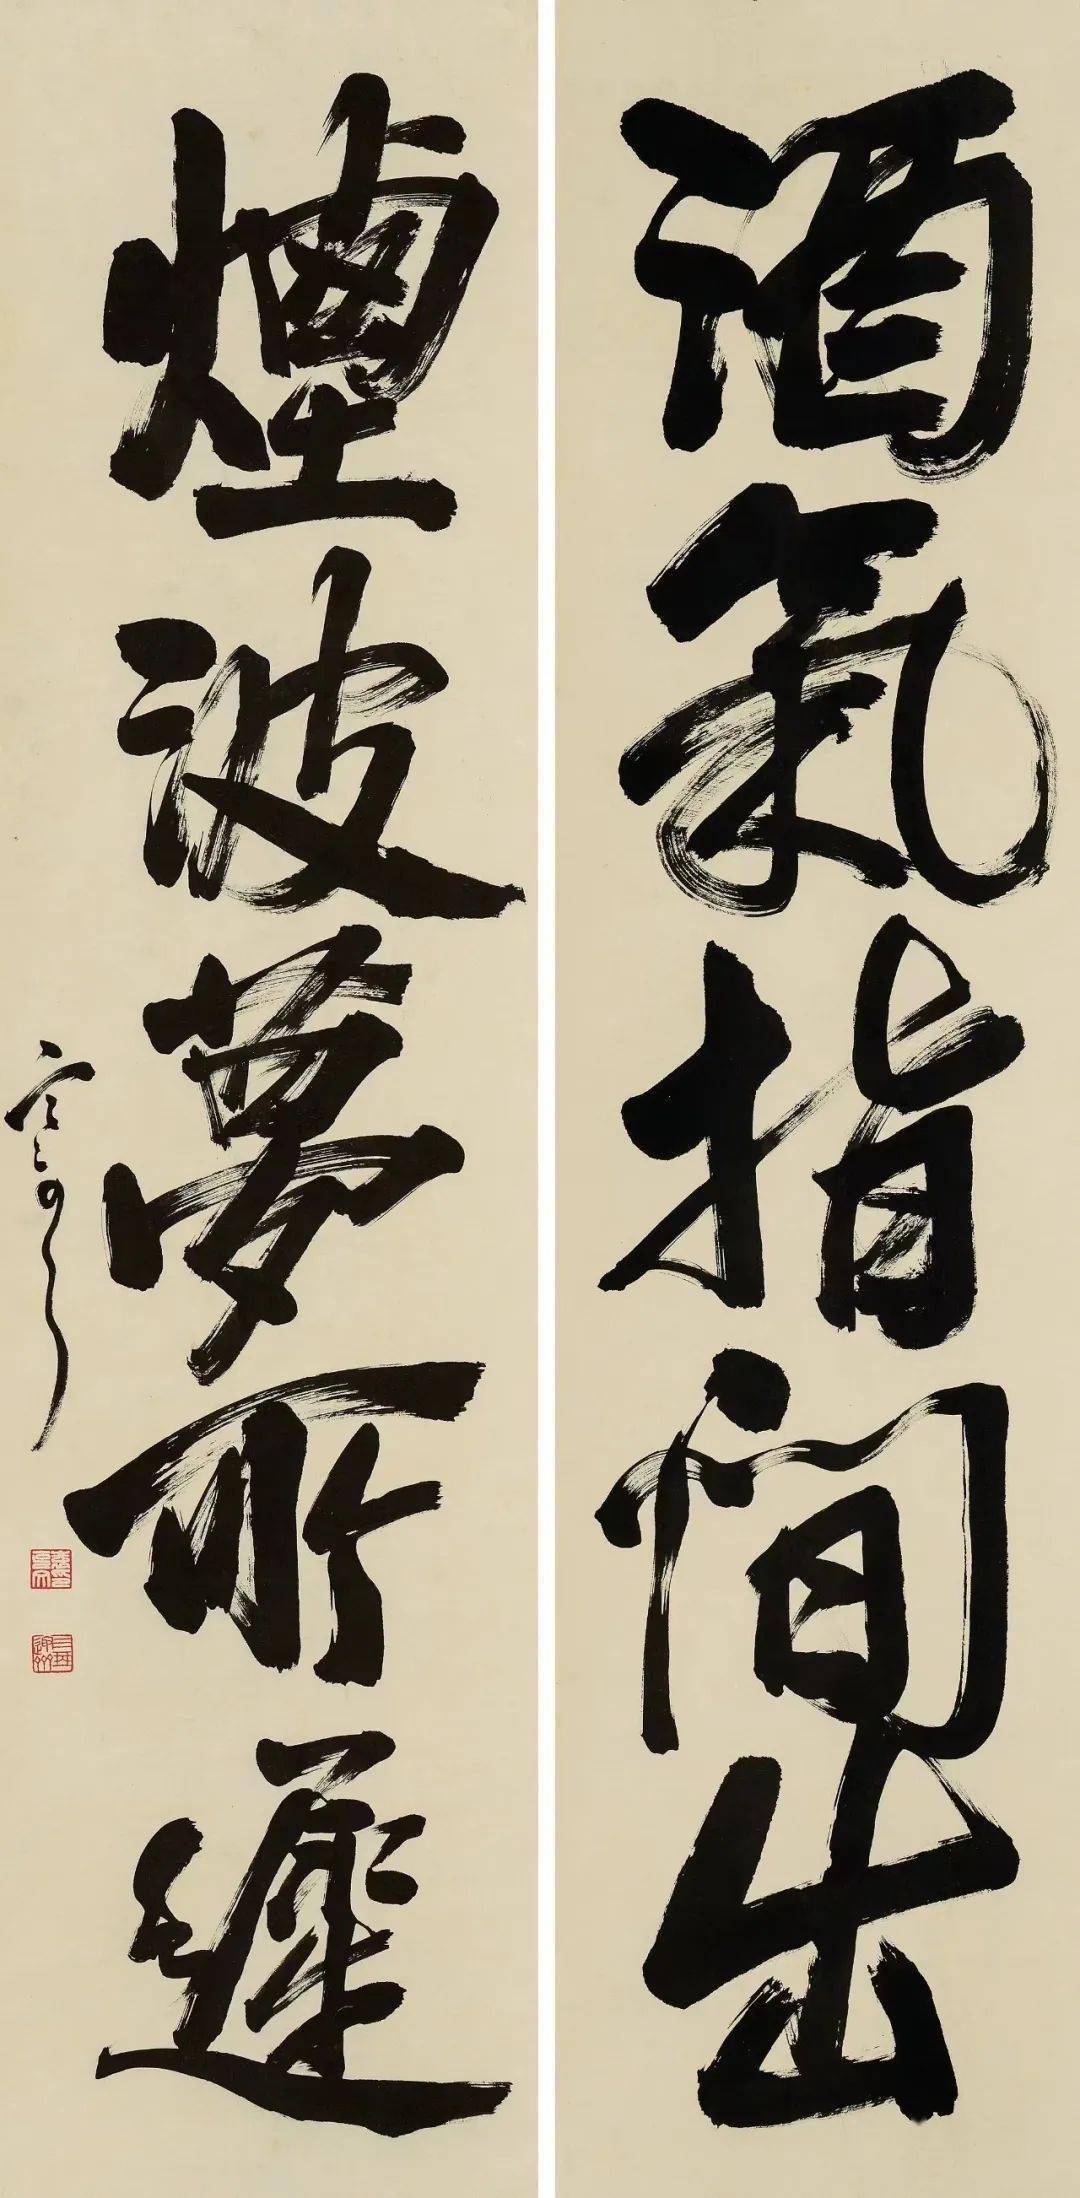 酒氣指間出
煙波夢所遲